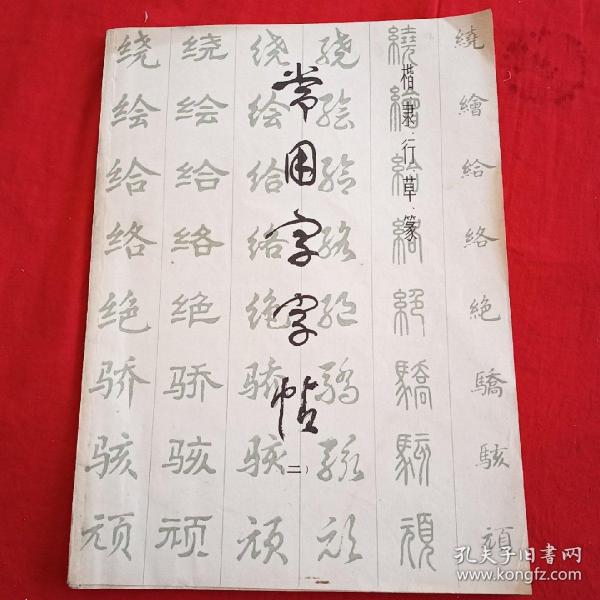 常用字字帖
(二)
楷·隶·行·草·篆
绕 绕 绕 绕 繞 繞
绘 绘 绘 绘 繪 繪
给 给 给 给 給 給
络 络 络 络 絡 絡
绝 绝 绝 绝 絕 絶
骄 骄 骄 骄 驕 驕
骇 骇 骇 骇 駭 駭
顽 顽 顽 顽 頑 頑
孔夫子旧书网
www.kongfz.com